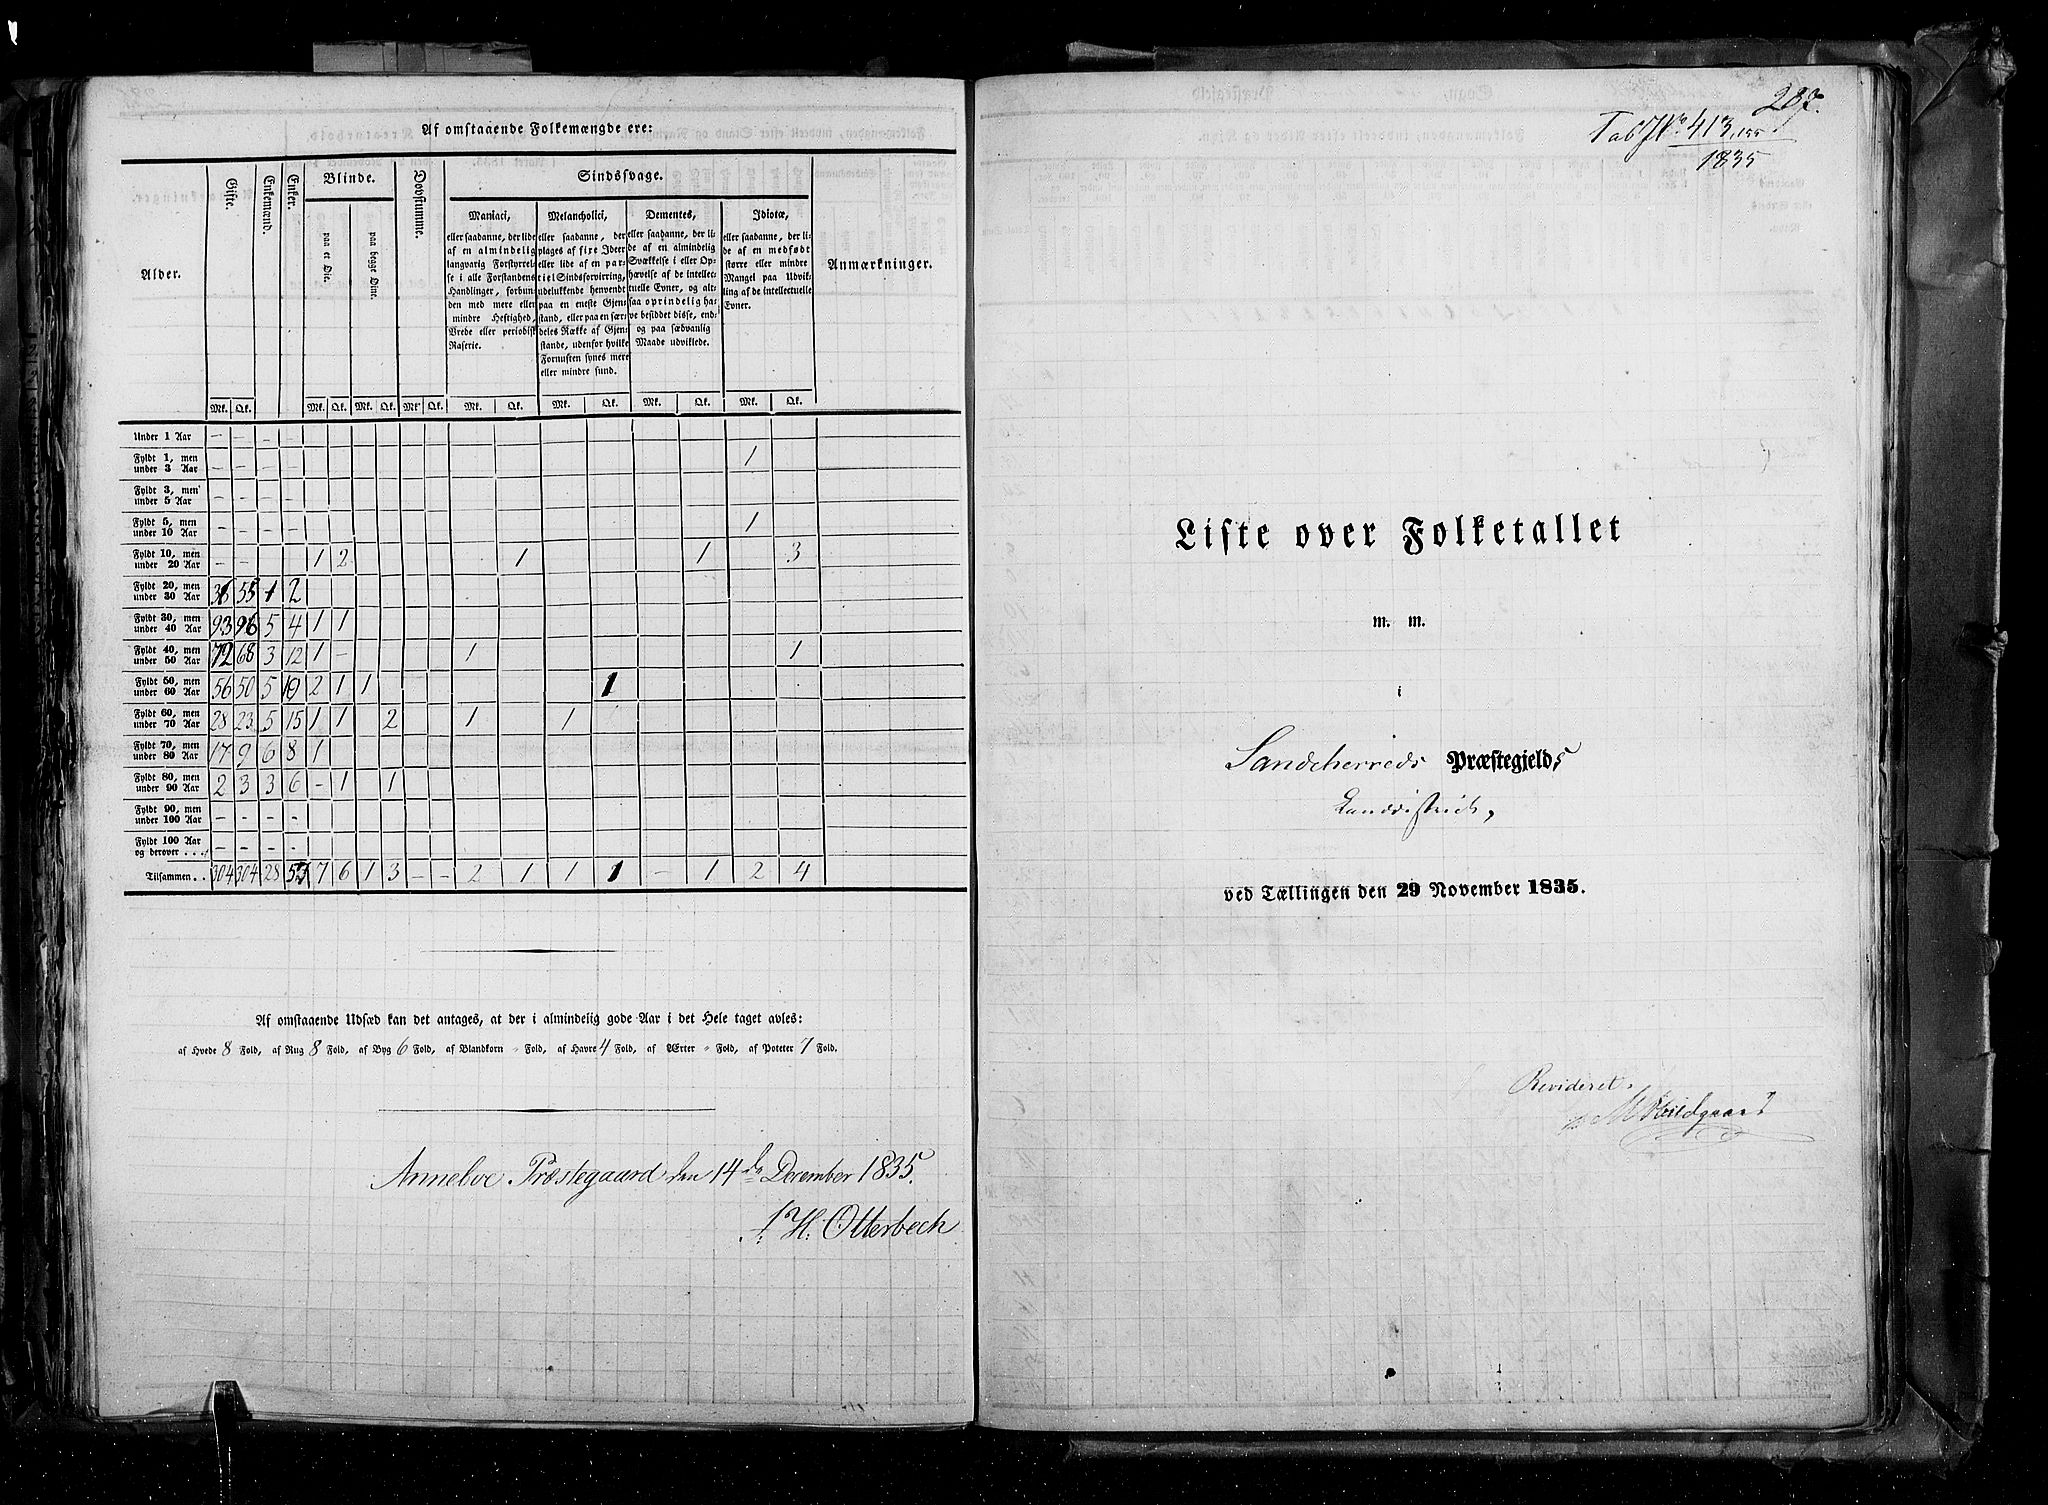 Af omstaaende Folkemængde ere:
Alder. Gifte. Enkemænd. Enker. Blinde. Dovstumme. Sindssvage. Anmærkninger.
paa et Øie. paa begge Øine.
Maniaci,
eller saadanne, der lide
af en almindelig
langvarig Forstyrrel-
se i alle Forstandens
Handlinger, forbun-
den med mere eller
mindre Heftighed,
Vrede eller periodisk
Raserie.
Melancholici,
eller saadanne, der
plages af fixe Ideer
eller lide af en par-
tiel Sindsforvirring,
udelukkende henvendt
paa en eneste Gjen-
stand, eller paa en sær-
deles Række af Gjen-
stande, udenfor hvilke
Fornuften synes mere
eller mindre sund.
Dementes,
eller saadanne, der li-
de af en almindelig
Svækkelse i eller Op-
hævelse af de intellec-
tuelle Evner, og alt-
saa oprindelig ha-
ve besiddet disse, end-
og paa sædvanlig
Maade udviklede.
Idiotæ,
eller saadanne, der li-
de af en medfødt
større eller mindre
Mangel paa Udvik-
ling af de intellectuelle
Evner.
Mk. Qk. Mk. Qk. Mk. Qk. Mk. Qk. Mk. Qk. Mk. Qk. Mk. Qk. Mk. Qk.
Under 1 Aar - - - -
Fyldt 1, men
under 3 Aar - - - - 1
Fyldt 3, men
under 5 Aar - - - -
Fyldt 5, men
under 10 Aar - - - - 1
Fyldt 10, men
under 20 Aar - - 1 2 1 1 3
Fyldt 20, men
under 30 Aar 36 55 1 2
Fyldt 30, men
under 40 Aar 93 96 5 4 1 1
Fyldt 40, men
under 50 Aar 72 68 3 12 1 - 1 1
Fyldt 50, men
under 60 Aar 56 50 5 10 2 1 1 1
Fyldt 60, men
under 70 Aar 28 23 5 15 1 1 2 1 1
Fyldt 70, men
under 80 Aar 17 9 6 8 1
Fyldt 80, men
under 90 Aar 2 3 3 6 - 1 1
Fyldt 90, men
under 100 Aar - - - -
Fyldt 100 Aar
og derover ... - - - -
Tilsammen.. 304 304 28 57 7 6 1 3 - - 2 1 1 1 - 1 2 4
Af omstaaende Udsæd kan det antages, at der i almindelig gode Aar i det Hele taget avles:
af Hvede 8 Fold, af Rug 8 Fold, af Byg 6 Fold, af Blandkorn " Fold, af Havre 4 Fold, af Ærter " Fold, af Poteter 7 Fold.
Annebve Præstegaard den 14de December 1835.
Otterbech
207.
Tab J No 413, 155
1835
Liste over Folketallet
m. m.
i
Sandeherreds Præstegjelds
Landdistrict,
ved Tællingen den 29 November 1835.
Revideret.